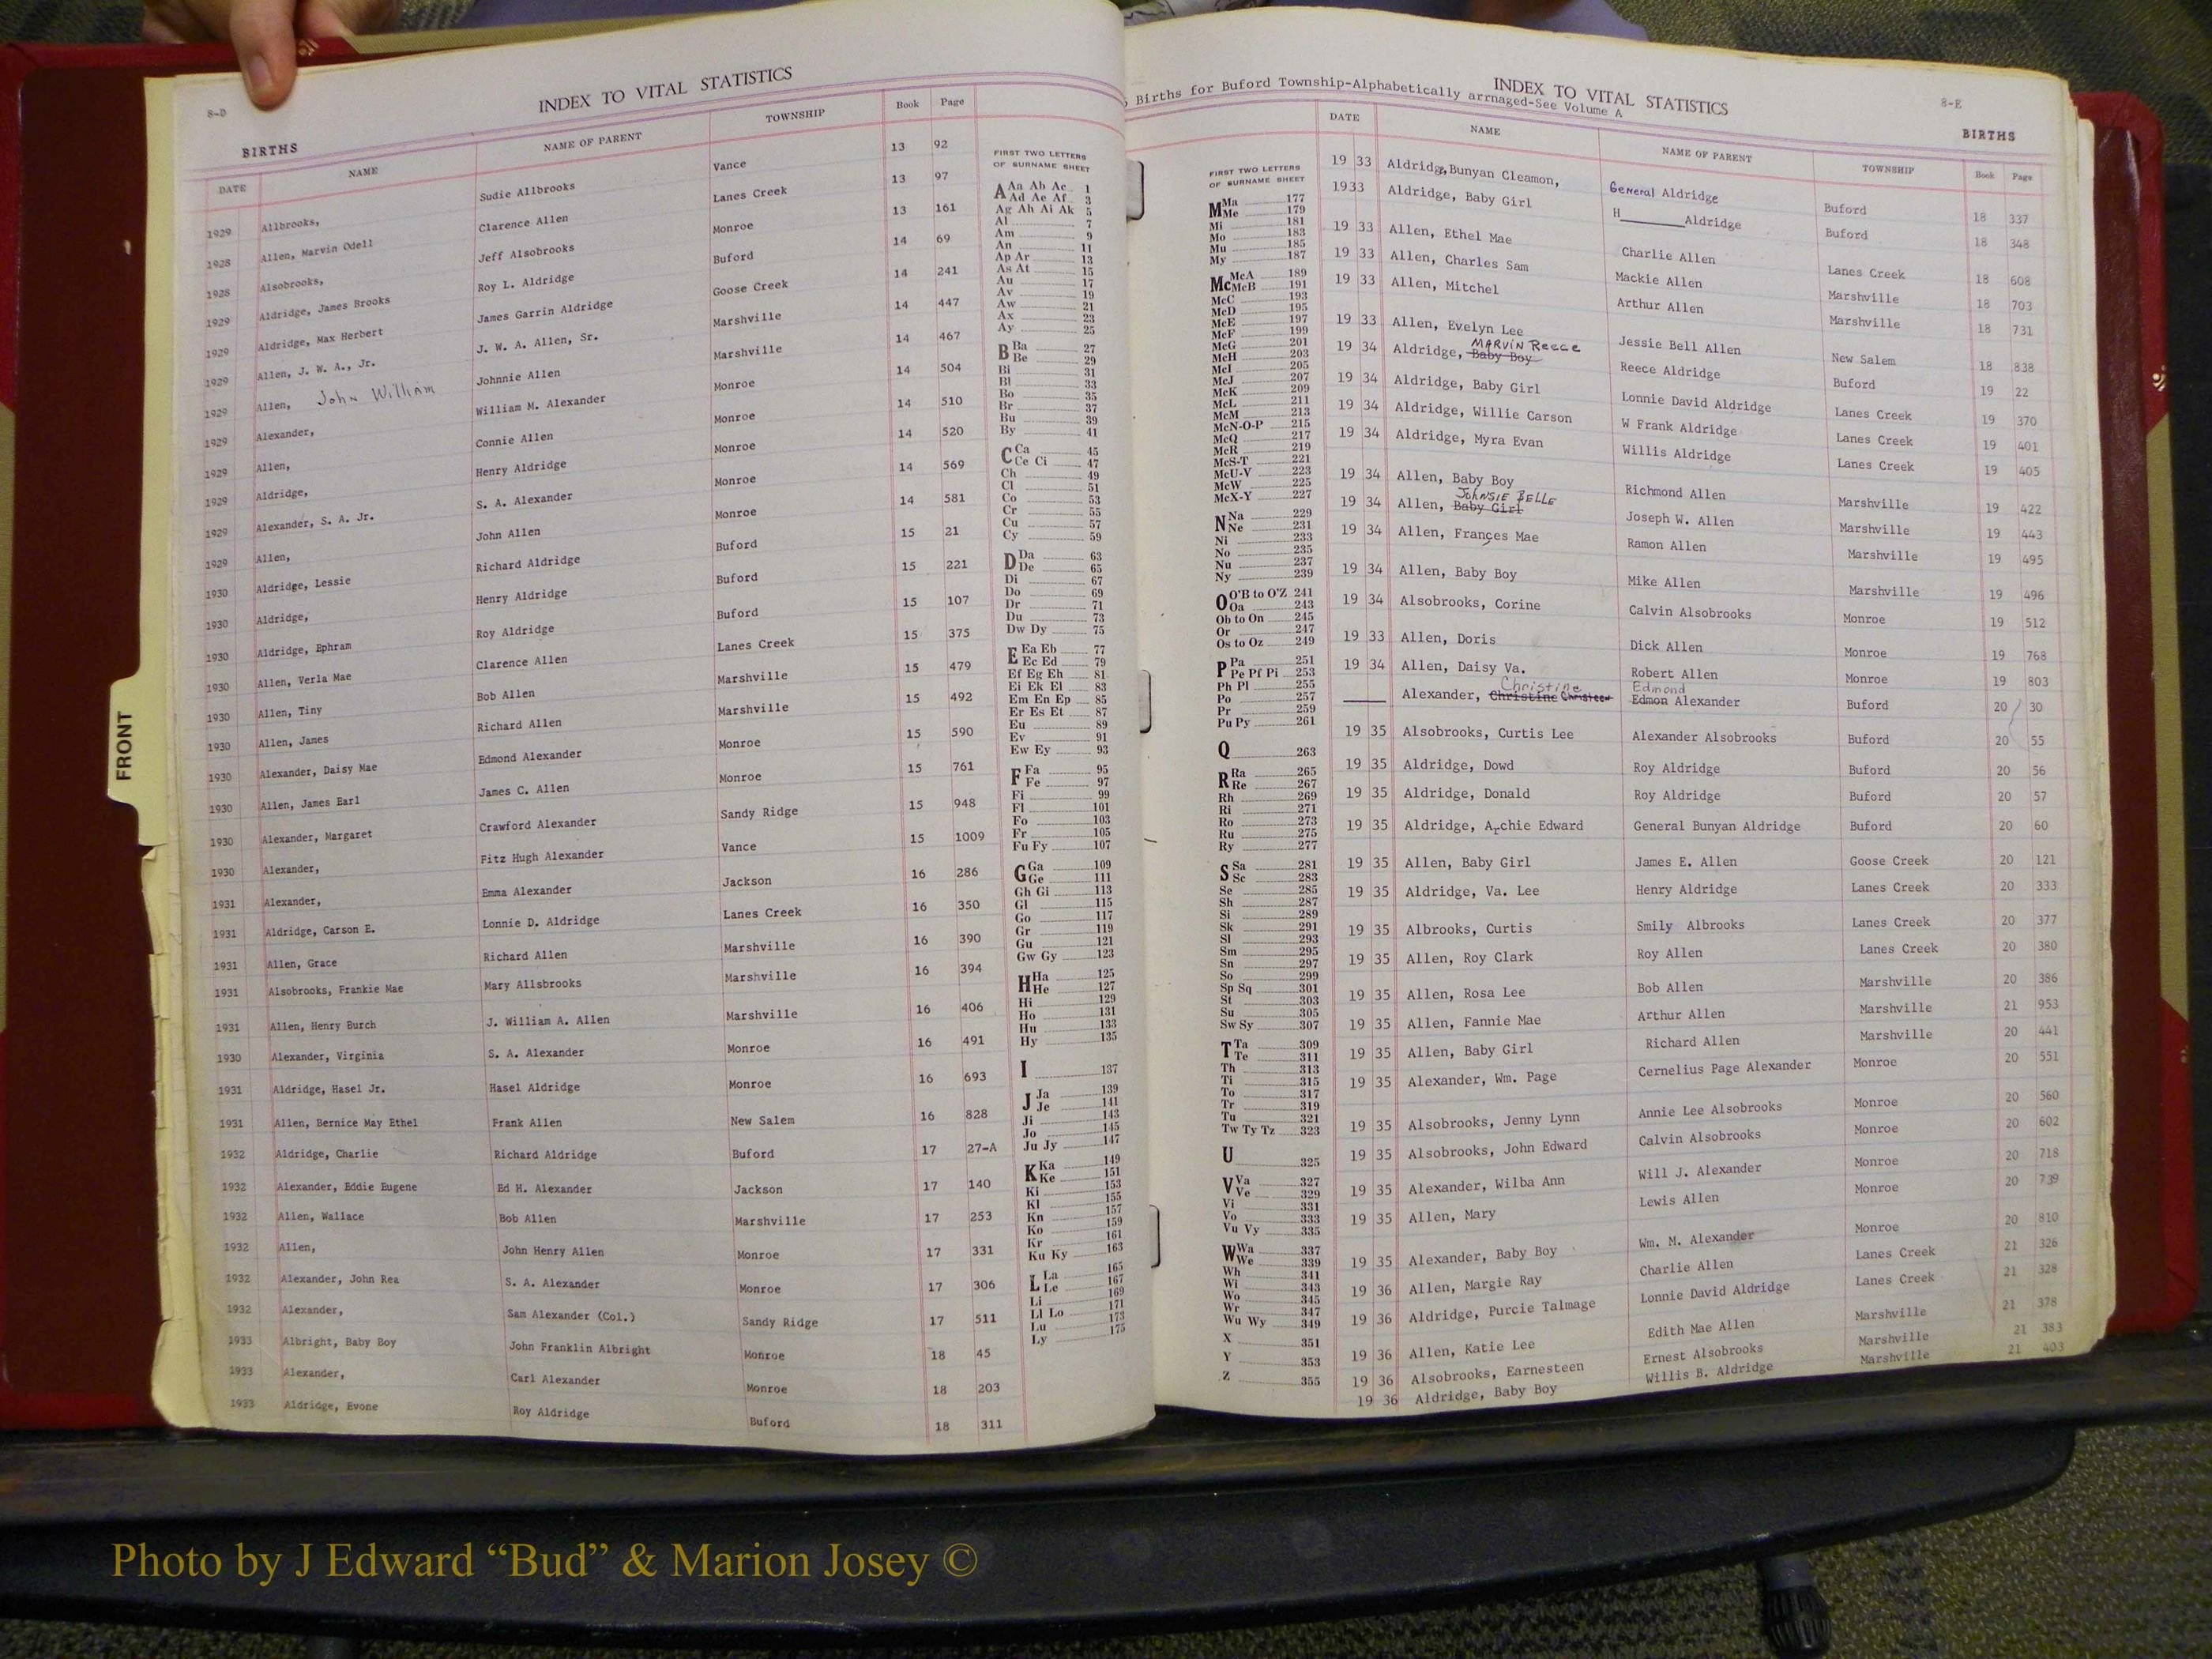 INDEX TO VITAL STATISTICS
8-D
BIRTHS
DATE NAME NAME OF PARENT TOWNSHIP Book Page
1929 Allbrooks, Sudie Allbrooks Vance 13 92
1928 Allen, Marvin Odell Clarence Allen Lanes Creek 13 97
1928 Alsobrooks, Jeff Alsobrooks Monroe 13 161
1929 Aldridge, James Brooks Roy L. Aldridge Buford 14 69
1929 Aldridge, Max Herbert James Garrin Aldridge Goose Creek 14 241
1929 Allen, J. W. A., Jr. J. W. A. Allen, Sr. Marshville 14 447
1929 Allen, John William Johnnie Allen Marshville 14 467
1929 Alexander, William M. Alexander Monroe 14 504
1929 Allen, Connie Allen Monroe 14 510
1929 Aldridge, Henry Aldridge Monroe 14 520
1929 Alexander, S. A. Jr. S. A. Alexander Monroe 14 569
1929 Allen, John Allen Monroe 14 581
1930 Aldridge, Lessie Richard Aldridge Buford 15 21
1930 Aldridge, Henry Aldridge Buford 15 221
1930 Aldridge, Ephram Roy Aldridge Buford 15 107
1930 Allen, Verla Mae Clarence Allen Lanes Creek 15 375
1930 Allen, Tiny Bob Allen Marshville 15 479
1930 Allen, James Richard Allen Marshville 15 492
1930 Alexander, Daisy Mae Edmond Alexander Monroe 15 590
1930 Allen, James Earl James C. Allen Monroe 15 761
1930 Alexander, Margaret Crawford Alexander Sandy Ridge 15 948
1930 Alexander, Fitz Hugh Alexander Vance 15 1009
1931 Alexander, Emma Alexander Jackson 16 286
1931 Aldridge, Carson E. Lonnie D. Aldridge Lanes Creek 16 350
1931 Allen, Grace Richard Allen Marshville 16 390
1931 Alsobrooks, Frankie Mae Mary Allsbrooks Marshville 16 394
1931 Allen, Henry Burch J. William A. Allen Marshville 16 406
1930 Alexander, Virginia S. A. Alexander Monroe 16 491
1931 Aldridge, Hasel Jr. Hasel Aldridge Monroe 16 693
1931 Allen, Bernice May Ethel Frank Allen New Salem 16 828
1932 Aldridge, Charlie Richard Aldridge Buford 17 27-A
1932 Alexander, Eddie Eugene Ed H. Alexander Jackson 17 140
1932 Allen, Wallace Bob Allen Marshville 17 253
1932 Allen, John Henry Allen Monroe 17 331
1932 Alexander, John Rea S. A. Alexander Monroe 17 306
1932 Alexander, Sam Alexander (Col.) Sandy Ridge 17 511
1933 Albright, Baby Boy John Franklin Albright Monroe 18 45
1933 Alexander, Carl Alexander Monroe 18 203
1933 Aldridge, Evone Roy Aldridge Buford 18 311
FIRST TWO LETTERS
OF SURNAME SHEET
A Aa Ab Ac 1
Ad Ae Af 3
Ag Ah Ai Ak 5
Al 7
Am 9
An 11
Ap Ar 13
As At 15
Au 17
Av 19
Aw 21
Ax 23
Ay 25
B Ba 27
Be 29
Bi 31
Bl 33
Bo 35
Br 37
Bu 39
By 41
C Ca 45
Ce Ci 47
Ch 49
Cl 51
Co 53
Cr 55
Cu 57
Cy 59
D Da 63
De 65
Di 67
Do 69
Dr 71
Du 73
Dw Dy 75
E Ea Eb 77
Ec Ed 79
Ef Eg Eh 81
Ei Ek El 83
Em En Ep 85
Er Es Et 87
Eu 89
Ev 91
Ew Ey 93
F Fa 95
Fe 97
Fi 99
Fl 101
Fo 103
Fr 105
Fu Fy 107
G Ga 109
Ge 111
Gh Gi 113
Gl 115
Go 117
Gr 119
Gu 121
Gw Gy 123
H Ha 125
He 127
Hi 129
Ho 131
Hu 133
Hy 135
I 137
J Ja 139
Je 141
Ji 143
Jo 145
Ju Jy 147
K Ka 149
Ke 151
Ki 153
Kl 155
Kn 157
Ko 159
Kr 161
Ku Ky 163
L La 165
Le 167
Li 169
Ll Lo 171
Lu 173
Ly 175
FRONT
INDEX TO VITAL STATISTICS
Births for Buford Township-Alphabetically arrnaged-See Volume A
8-E
BIRTHS
FIRST TWO LETTERS
OF SURNAME SHEET
M Ma 177
Me 179
Mi 181
Mo 183
Mu 185
My 187
Mc McA 189
McB 191
McC 193
McD 195
McE 197
McF 199
McG 201
McH 203
McI 205
McJ 207
McK 209
McL 211
McM 213
McN-O-P 215
McQ 217
McR 219
McS-T 221
McU-V 223
McW 225
McX-Y 227
N Na 229
Ne 231
Ni 233
No 235
Nu 237
Ny 239
O O'B to O'Z 241
Oa 243
Ob to On 245
Or 247
Os to Oz 249
P Pa 251
Pe Pf Pi 253
Ph Pl 255
Po 257
Pr 259
Pu Py 261
Q 263
R Ra 265
Re 267
Rh 269
Ri 271
Ro 273
Ru 275
Ry 277
S Sa 281
Sc 283
Se 285
Sh 287
Si 289
Sk 291
Sl 293
Sm 295
Sn 297
So 299
Sp Sq 301
St 303
Su 305
Sw Sy 307
T Ta 309
Te 311
Th 313
Ti 315
To 317
Tr 319
Tu 321
Tw Ty Tz 323
U 325
V Va 327
Ve 329
Vi 331
Vo 333
Vu Vy 335
W Wa 337
We 339
Wh 341
Wi 343
Wo 345
Wr 347
Wu Wy 349
X 351
Y 353
Z 355
DATE NAME NAME OF PARENT TOWNSHIP Book Page
19 33 Aldridg,Bunyan Cleamon, General Aldridge Buford 18 337
1933 Aldridge, Baby Girl H______Aldridge Buford 18 348
19 33 Allen, Ethel Mae Charlie Allen Lanes Creek 18 608
19 33 Allen, Charles Sam Mackie Allen Marshville 18 703
19 33 Allen, Mitchel Arthur Allen Marshville 18 731
19 33 Allen, Evelyn Lee Jessie Bell Allen New Salem 18 838
19 34 Aldridge, Baby Boy MARVIN REECE Reece Aldridge Buford 19 22
19 34 Aldridge, Baby Girl Lonnie David Aldridge Lanes Creek 19 370
19 34 Aldridge, Willie Carson W Frank Aldridge Lanes Creek 19 401
19 34 Aldridge, Myra Evan Willis Aldridge Lanes Creek 19 405
19 34 Allen, Baby Boy Richmond Allen Marshville 19 422
19 34 Allen, Baby Girl JOHNSIE BELLE Joseph W. Allen Marshville 19 443
19 34 Allen, Frances Mae Ramon Allen Marshville 19 495
19 34 Allen, Baby Boy Mike Allen Marshville 19 496
19 34 Alsobrooks, Corine Calvin Alsobrooks Monroe 19 512
19 33 Allen, Doris Dick Allen Monroe 19 768
19 34 Allen, Daisy Va. Robert Allen Monroe 19 803
Alexander, Christine Christeen Christine Edmon Edmond Alexander Buford 20 30
19 35 Alsobrooks, Curtis Lee Alexander Alsobrooks Buford 20 55
19 35 Aldridge, Dowd Roy Aldridge Buford 20 56
19 35 Aldridge, Donald Roy Aldridge Buford 20 57
19 35 Aldridge, Archie Edward General Bunyan Aldridge Buford 20 60
19 35 Allen, Baby Girl James E. Allen Goose Creek 20 121
19 35 Aldridge, Va. Lee Henry Aldridge Lanes Creek 20 333
19 35 Albrooks, Curtis Smily Albrooks Lanes Creek 20 377
19 35 Allen, Roy Clark Roy Allen Lanes Creek 20 380
19 35 Allen, Rosa Lee Bob Allen Marshville 20 386
19 35 Allen, Fannie Mae Arthur Allen Marshville 21 953
19 35 Allen, Baby Girl Richard Allen Marshville 20 441
19 35 Alexander, Wm. Page Cernelius Page Alexander Monroe 20 551
19 35 Alsobrooks, Jenny Lynn Annie Lee Alsobrooks Monroe 20 560
19 35 Alsobrooks, John Edward Calvin Alsobrooks Monroe 20 602
19 35 Alexander, Wilba Ann Will J. Alexander Monroe 20 718
19 35 Allen, Mary Lewis Allen Monroe 20 739
19 35 Alexander, Baby Boy Wm. M. Alexander Monroe 20 810
19 36 Allen, Margie Ray Charlie Allen Lanes Creek 21 326
19 36 Aldridge, Purcie Talmage Lonnie David Aldridge Lanes Creek 21 328
19 36 Allen, Katie Lee Edith Mae Allen Marshville 21 378
19 36 Alsobrooks, Earnesteen Ernest Alsobrooks Marshville 21 383
19 36 Aldridge, Baby Boy Willis B. Aldridge Marshville 21 403
Photo by J Edward “Bud” & Marion Josey ©